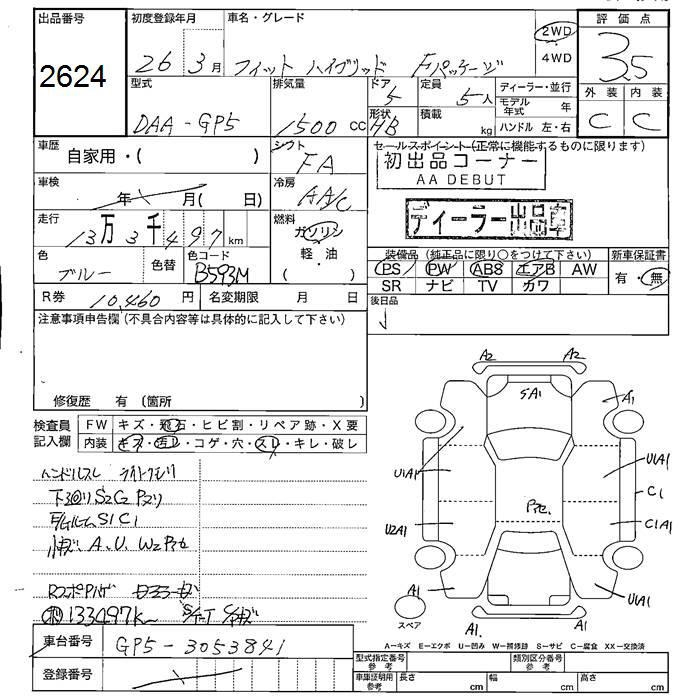 出品番号 初度登録年月 車名・グレード 評価点
2624 26 3月 フィット ハイブリッド Fパッケージ 2WD 4WD 3.5
型式 排気量 ドア 定員 ディーラー・並行 外装 内装
DAA-GP5 1500 cc 5 5人 モデル年式 年 C C
形状 HB 積載 kg ハンドル 左・右
車歴 自家用・( ) シフト FA セールスポイント(正常に機能するものに限ります)
初出品コーナー
AA DEBUT
車検 年 月( 日) 冷房 AA/C
ディーラー出品車
走行 13万3千497km 燃料 ガソリン 軽・油 ( )
色 ブルー 色替 色コード B593M
装備品(純正品に限り○をつけて下さい) 新車保証書
PS PW ABS エアB AW 有・無
SR ナビ TV カワ
R券 10,460円 名変期限 月 日 後日品
注意事項申告欄(不具合内容等は具体的に記入して下さい)
修復歴 有(箇所 )
検査員記入欄 FW キズ・飛石・ヒビ割・リペア跡・X要
内装 キズ・汚レ・コゲ・穴・スレ・キレ・破レ
ハンドルスレ ライトクモリ
下回り S2C2 Pスリ
S1C1
小キズ A.U.
133497K
A2 A2
SA1 A1
U1A1 U1A1
C1
U2A1 C1A1
A1 U1A1
スペア A1. A1
A=キズ E=エクボ U=凹み W=補修跡 S=サビ C=腐食 XX=交換済
車台番号 GP5-3053841
登録番号
型式指定番号 参考 類別区分番号 参考
車庫証明用 参考 長さ cm 幅 cm 高さ cm